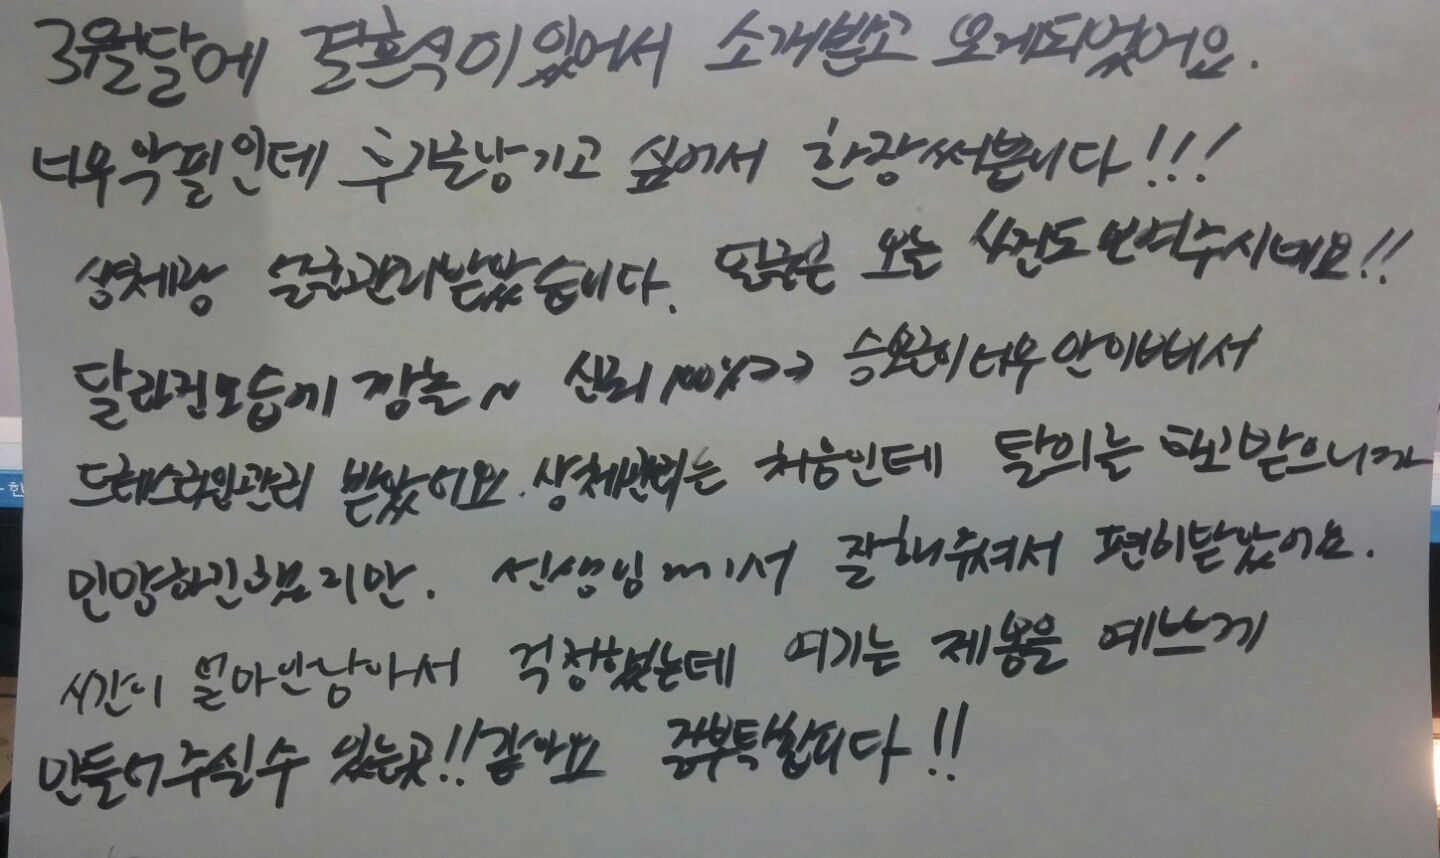 3월달에 결혼식이있어서 소개받고 오게되었어요.
너무악필인데 후기를남기고 싶어서 한장써봅니다!!!
상체랑 얼굴관리받았습니다. 얼굴은 오늘 사진도보여주시네요!!
달라진모습에 깜놀~ 신뢰100%ㅋㅋ 승모근이너무안이뻐서
드레스라인관리 받았어요.상체관리는 처음인데 탈의를 하고받으니까
민망하긴했지만. 선생님께서 잘해주셔서 편히받았어요.
시간이 얼마안남아서 걱정했었는데 여기는 제몸을 예쁘게
만들어주실수 있는곳!!같아요 잘부탁합니다!!